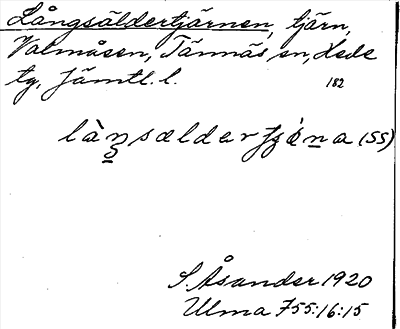 Långsäldertjärnen, tjärn,
Valmåsen, Tännäs sn, Hede
tg, Jämtl. l. 182
làn̠sældertjæ̀n̠a (SS)
S. Åsander 1920
Ulma 755:16:15